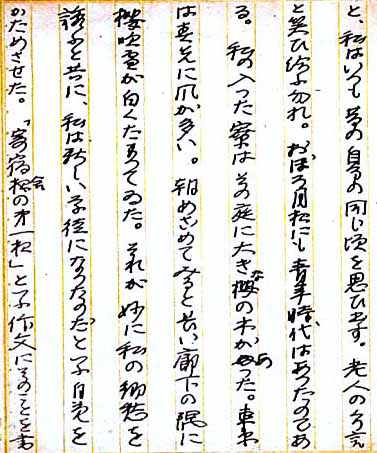 と、私はいつも昔の自分の同じ頃を思ひ出す。老人のくり言
と笑ひ給ふ勿れ。おぼろ月夜にも青年時代はあつたのであ
る。私の入つた寮はその庭に大きな桜の木があつた。東京
は春先に風が多い。朝めざめてみると長い廊下の隅に
桜吹雪が白くたまつてゐた。それが妙に私の郷愁を
誘ふと共に、私は新しい学徒になつたのだと云ふ自覚を
かためさせた。「寄宿舎の才一夜」と云ふ作文にそのことを書